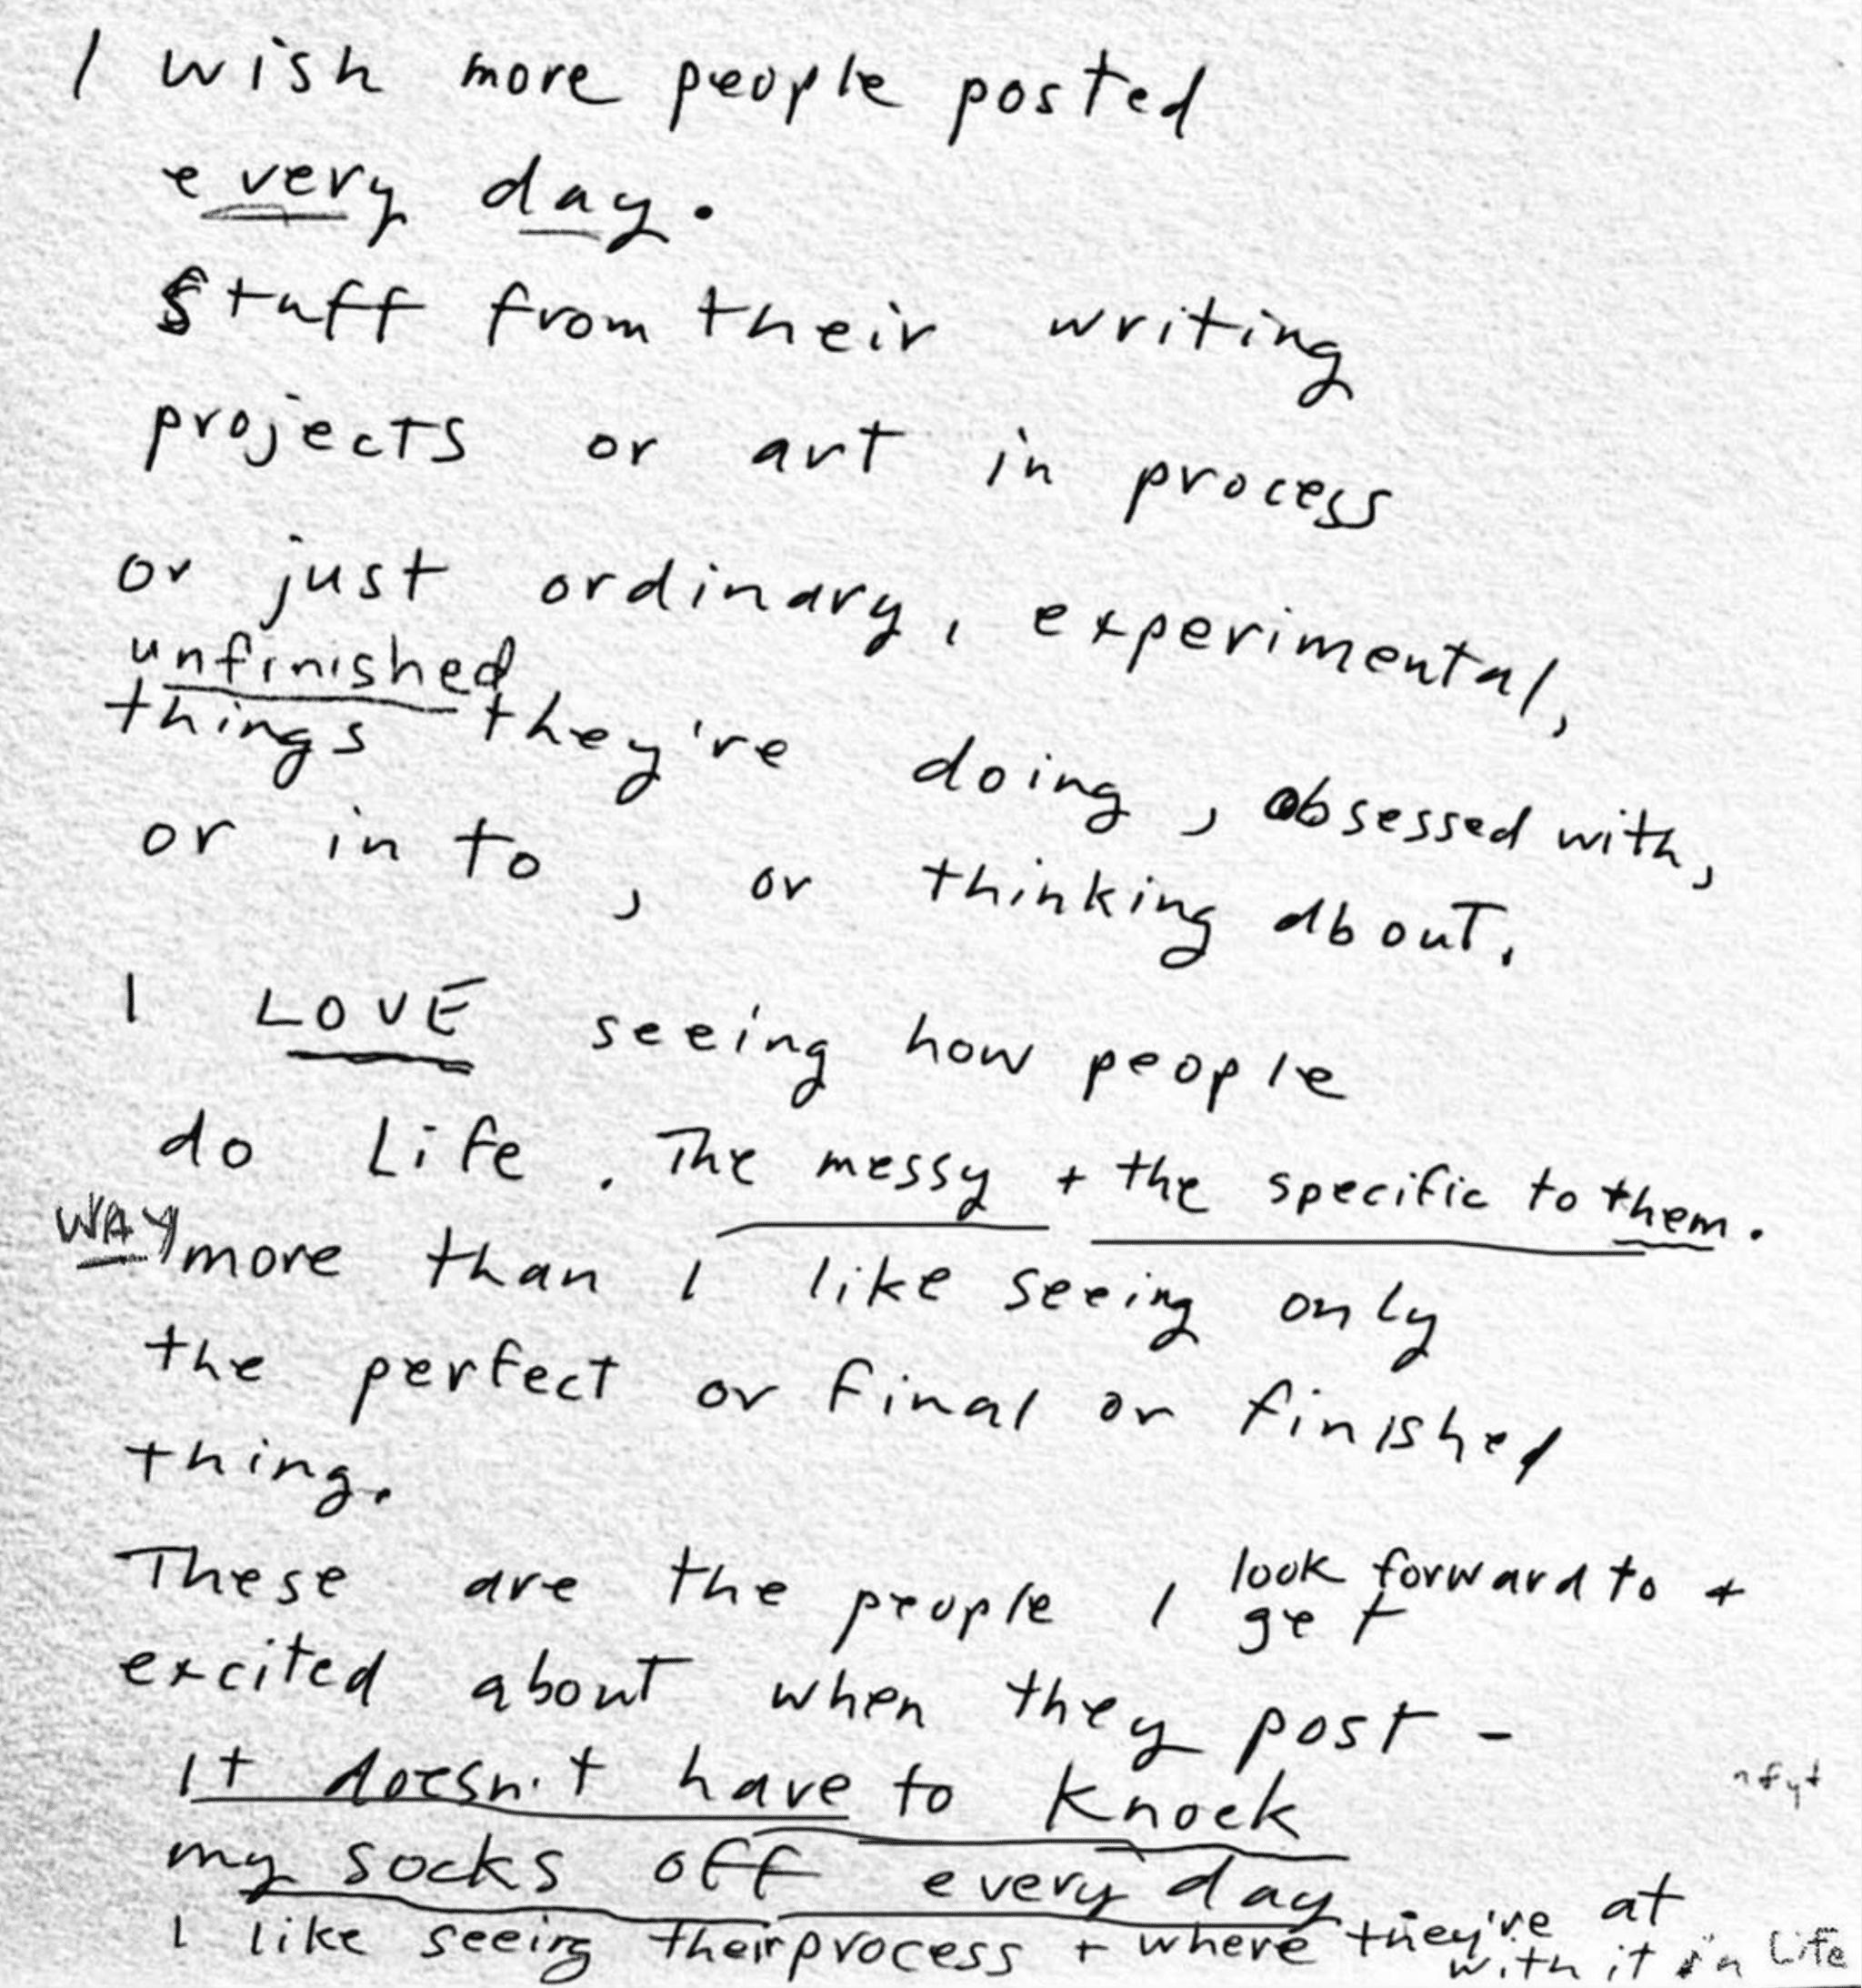 I wish more people posted
every day.
Stuff from their writing
projects or art in process
or just ordinary, experimental,
unfinished
things they're doing, obsessed with,
or in to, or thinking about.
I LOVE seeing how people
do Life. The messy + the specific to them.
WAY more than I like seeing only
the perfect or final or finished
thing.
These are the people I look forward to +
get
excited about when they post -
It doesn't have to knock
my socks off every day
I like seeing their process + where they're at
with it in Life